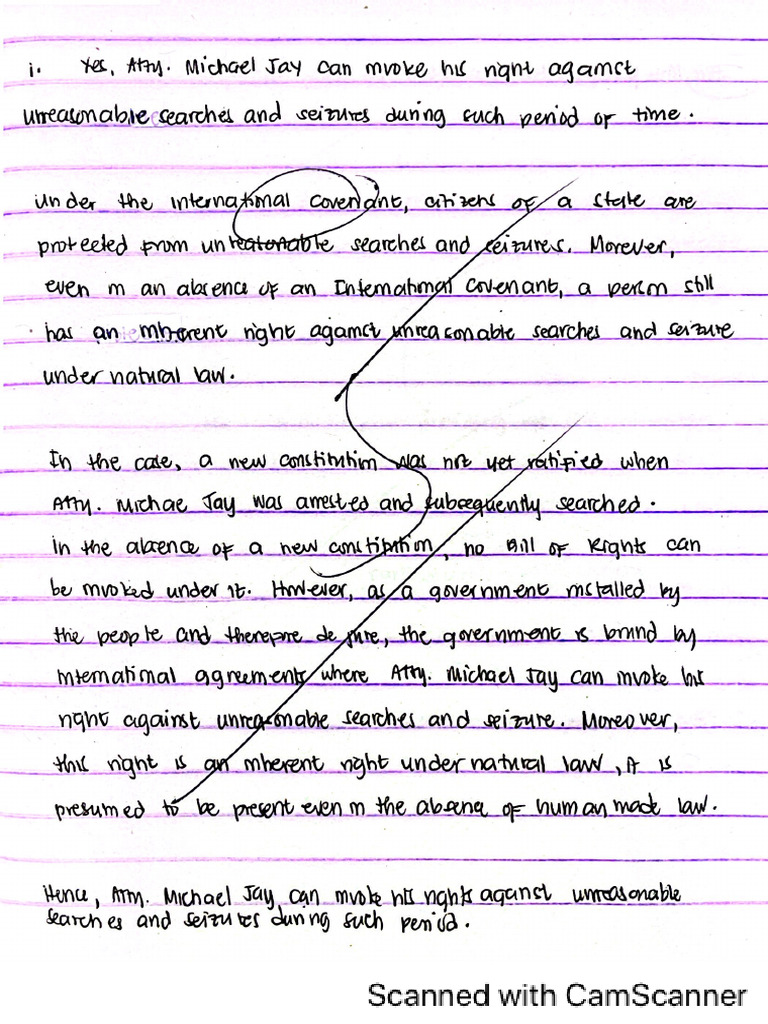 1. Yes, Atty. Michael Jay can invoke his right against
unreasonable searches and seizures during such period of time.
Under the international covenant, citizens of a state are
protected from unreasonable searches and seizures. Morever,
even in an absence of an International Covenant, a person still
has an inherent right against unreasonable searches and seizure
under natural law.
In the case, a new constitution was not yet ratified when
Atty. Michae Jay was arrested and subsequently searched.
in the absence of a new constitution, no Bill of Rights can
be invoked under it. However, as a government installed by
the people and therefore de jure, the government is bound by
international agreements where Atty. Michael Jay can invoke his
right against unreasonable searches and seizure. Moreover,
this right is an inherent right under natural law, it is
presumed to be present even in the absence of human made law.
Hence, Atty. Michael Jay can invoke his rights against unreasonable
searches and seizures during such period.
Scanned with CamScanner